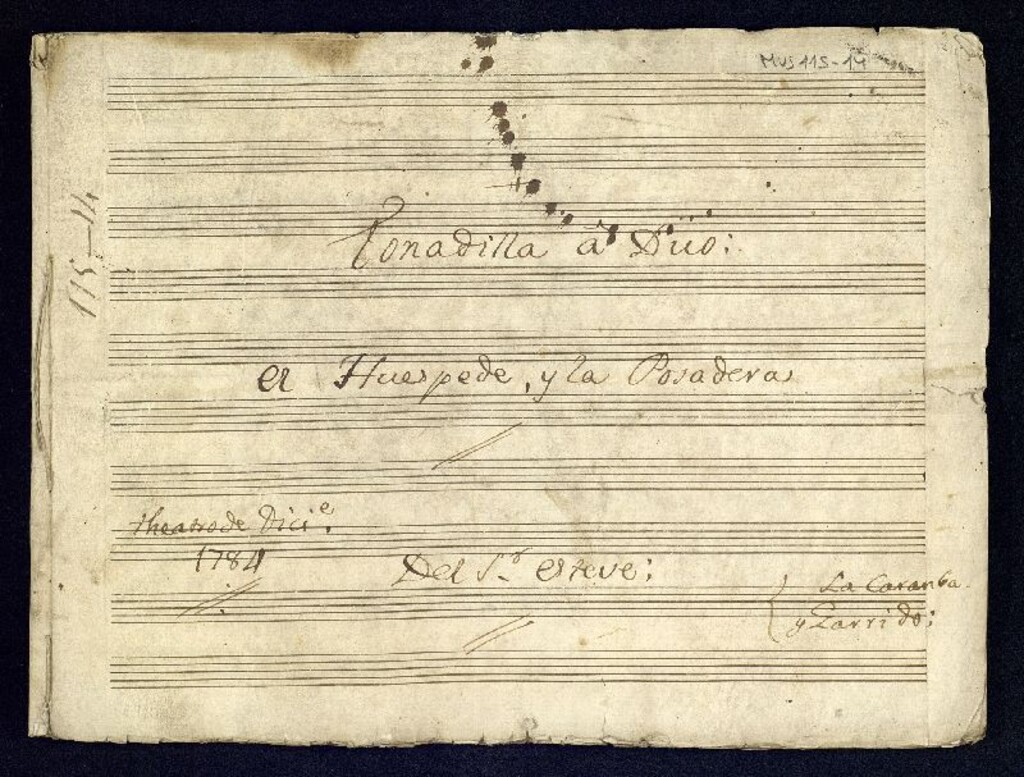 MUS 115-14
115-14
Tonadilla â Duo:
el Huespede, y la Posadera
theatro de Dicie.
1784
Del Sr. esteve:
La Caramba
y Garrido: